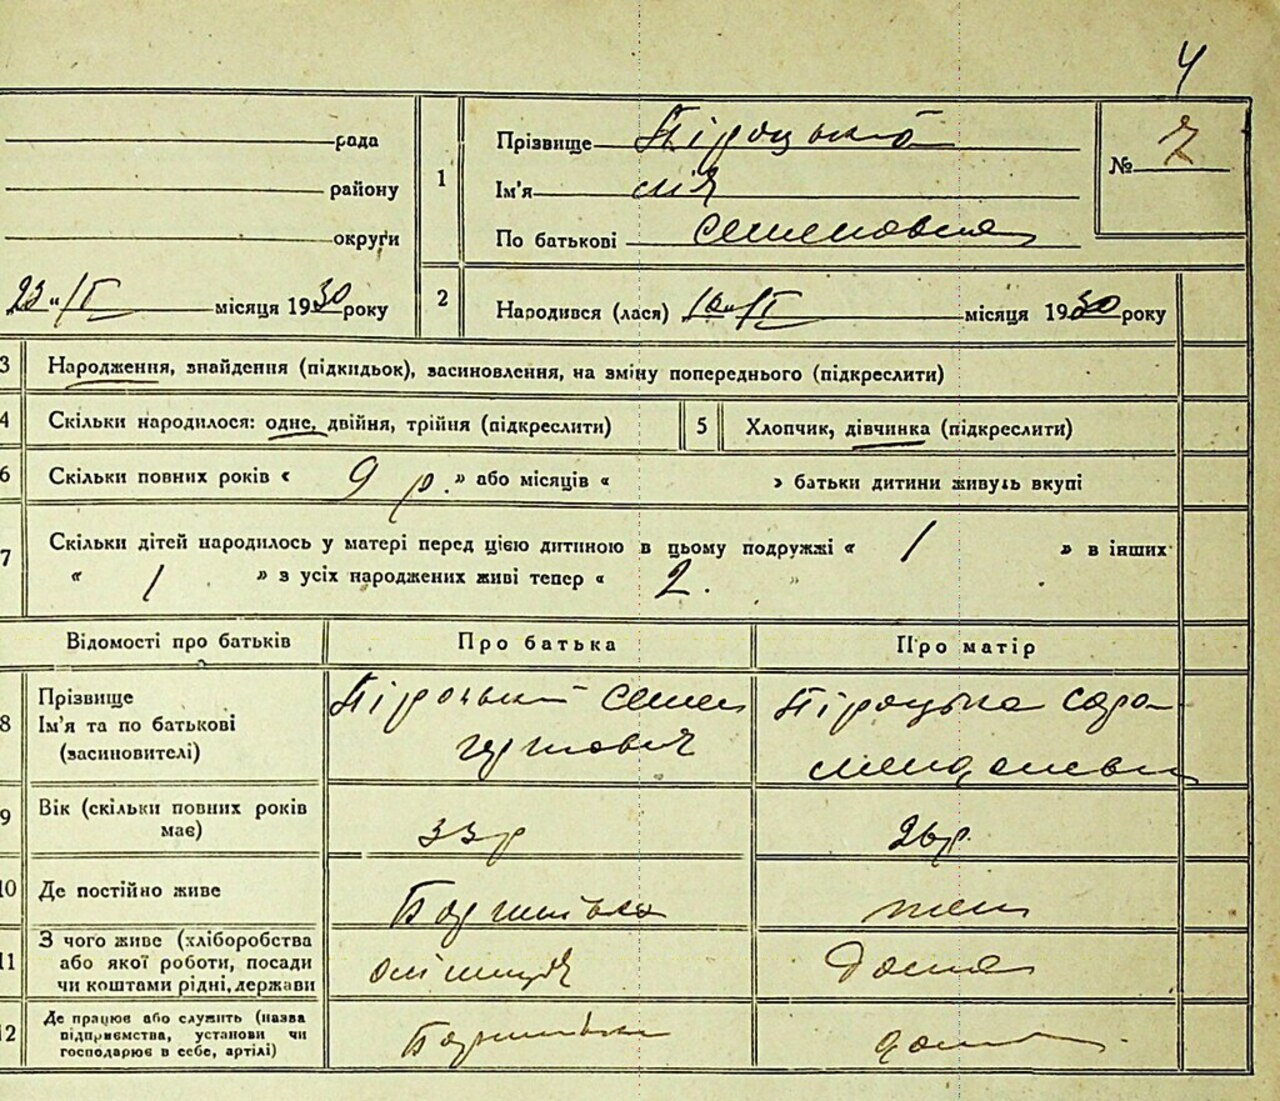 4
рада
району
округи
23 "/II місяця 1930 року
1
Прізвище Пiроцький
Ім'я
По батькові Семеновна
№ 7
2
Народився (лася) місяця 1930 року
3 Народження, знайдення (підкидьок), засиновлення, на зміну попереднього (підкреслити)
4 Скільки народилося: одне, двійня, трійня (підкреслити)
5 Хлопчик, дівчинка (підкреслити)
6 Скільки повних років « 9 р. » або місяців « » батьки дитини живуть вкупі
7 Скільки дітей народилось у матері перед цією дитиною в цьому подружжі « 1 » в інших
« 1 » з усіх народжених живі тепер « 2. »
Відомості про батьків
Про батька
Про матір
8 Прізвище
Ім'я та по батькові
(засиновителі)
Піроцький Семен
Піроцька Сара
9 Вік (скільки повних років
має)
33 р
26 р.
10 Де постійно живе
11 З чого живе (хліборобства
або якої роботи, посади
чи коштами рідні, держави
Дома
12 Де працює або служить (назва
підприємства, установи чи
господарює в себе, артілі)
дома